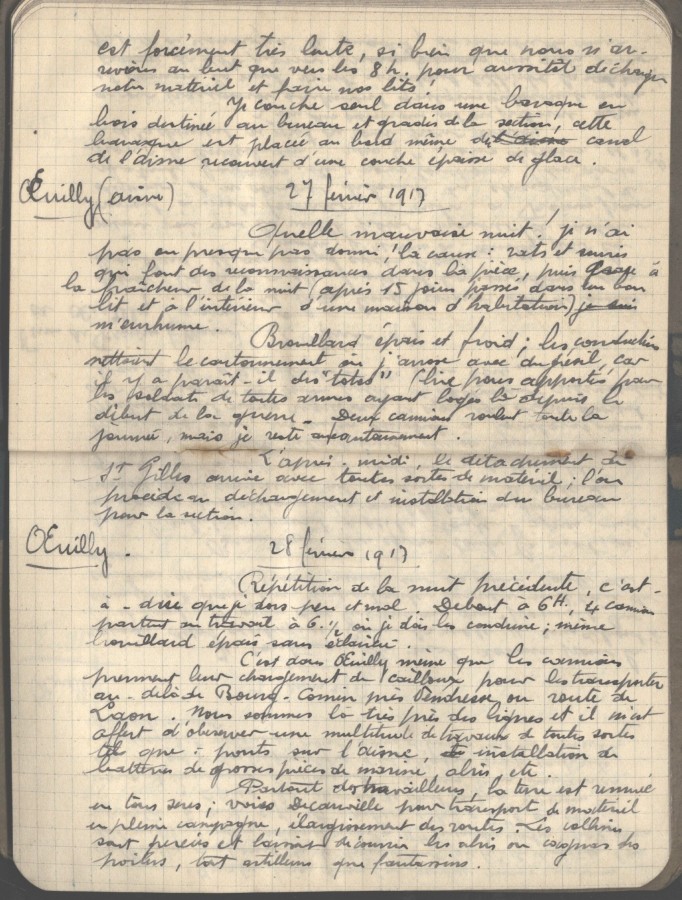 est forcément très lente, si bien que nous n'ar-
rivons au but que vers les 8 h. pour aussitôt décharger
notre matériel et faire nos lits.
Je couche seul dans une baraque en
bois destinée au bureau et gradés de la section, cette
baraque est placée au bord même de l'aisne canal
de l'aisne recouvert d'une couche épaisse de glace.
Œuilly (aisne) 27 février 1917
Quelle mauvaise nuit! je n'ai
pas ou presque pas dormi, la cause : rats et souris
qui font des reconnaissances dans la pièce, puis grâce à
la fraîcheur de la nuit (après 15 jours passés dans un bon
lit et à l'intérieur d'une maison d'habitation) je suis
m'enrhume.
Brouillard épais et froid; les conducteurs
nettoient le cantonnement où j'arrose avec du crésil, car
il y a paraît-il des "totos" (lire poux) apportés par
les soldats de toutes armes ayant logés là depuis le
début de la guerre. Deux camions roulent toute la
journée, mais je reste au cantonnement.
L'après-midi, le détachement de
St Gilles arrive avec toutes sortes de matériel; l'on
procède au déchargement et installation du bureau
pour la section.
Œuilly. 28 février 1917
Répétition de la nuit précédente, c'est-
à-dire que je dors peu et mal. Debout à 6H, 4 camions
partent au travail à 6.½ où je dois les conduire; même
brouillard épais sans éclaircie.
C'est dans Œuilly même que les camions
prennent leur chargement de cailloux pour les transporter
au-delà de Bourg-Comin près Vendresse ou route de
Laon. Nous sommes là très près des lignes et il m'est
offert d'observer une multitude de travaux de toutes sortes
tel que : ponts sur l'aisne, installation de
batteries de grosses pièces de marine, abris etc.
Partout des travailleurs, la terre est remuée
en tous sens; voies Decauville pour transport de matériel
en pleine campagne, élargissement des routes. Les collines
sont percées et laissent découvrir les abris ou cagnas des
poilus, tant artilleurs que fantassins.